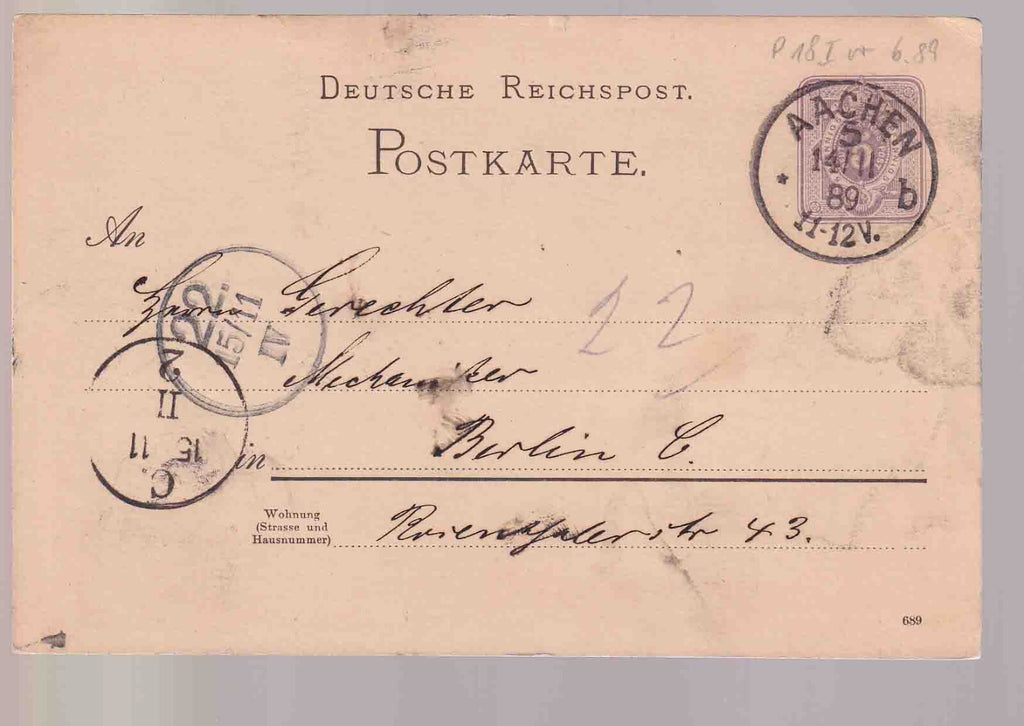 P 18 I 6.89
DEUTSCHE REICHSPOST.
POSTKARTE.
AACHEN
5
14/11
89 b
* 11-12 V.
An
Herrn Gerechter
22
Mechaniker
Berlin C.
in
Wohnung
(Strasse und
Hausnummer)
Rosenthalerstr 43.
689
22.
15/11
IV
C.
15 11
II
2